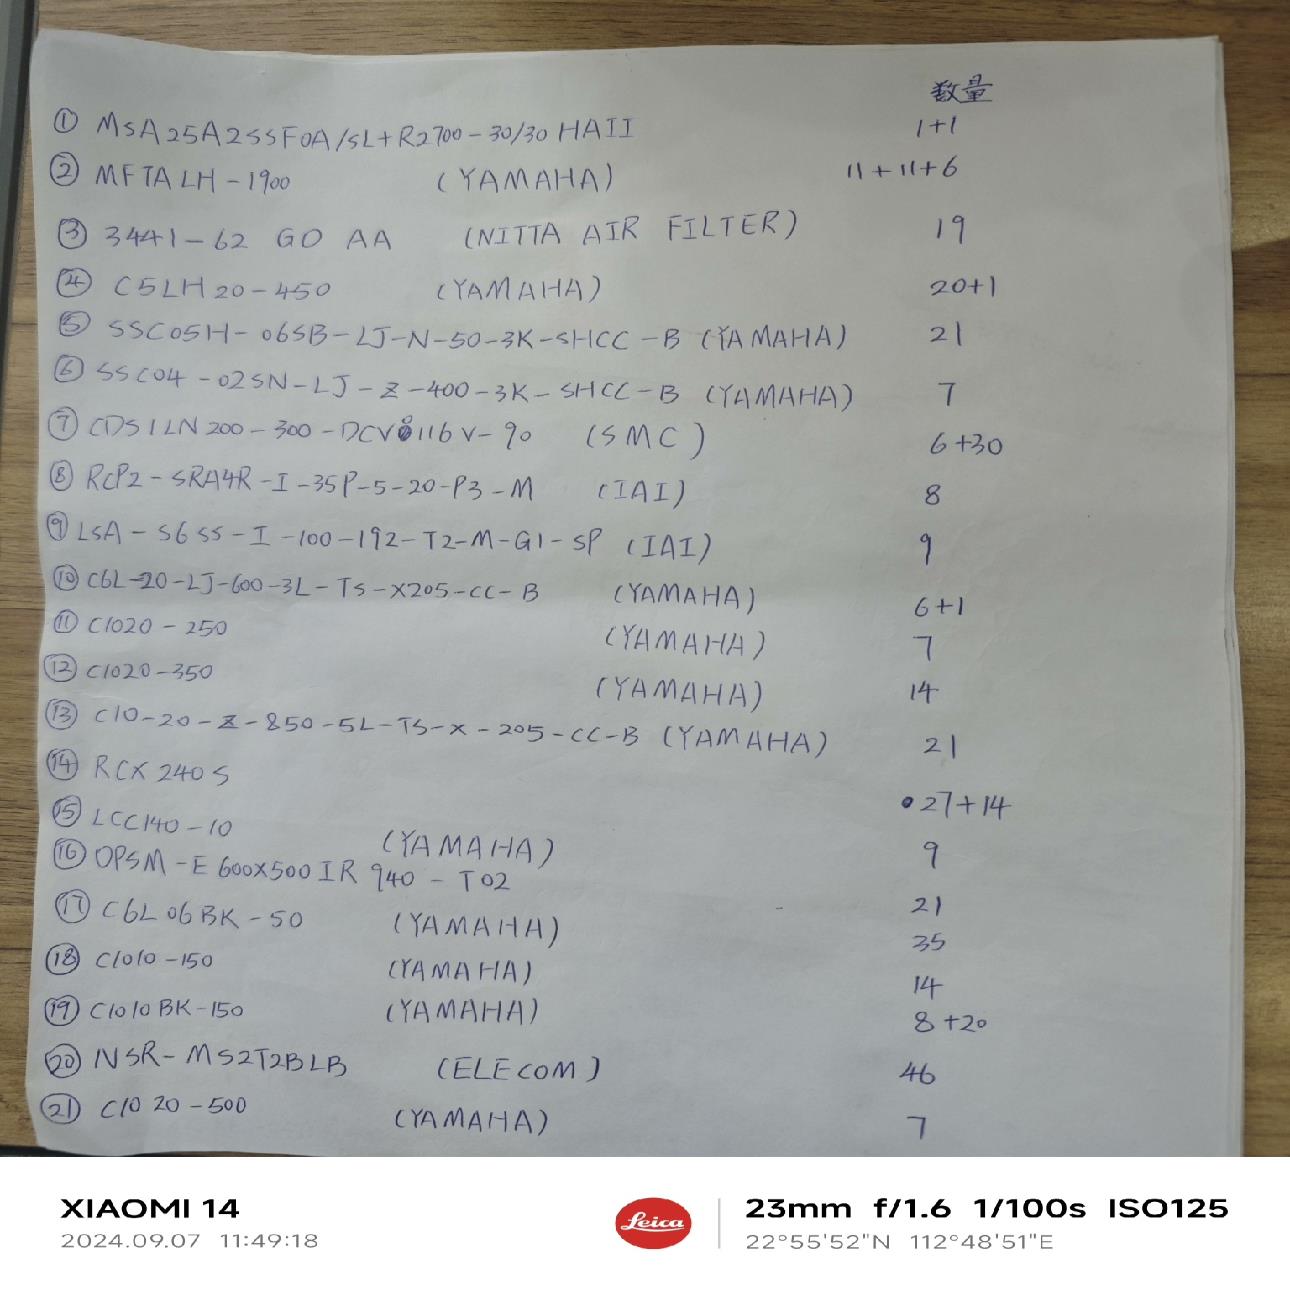 数量
① MSA25A2SSF0A/SL+R2700-30/30 HAII 1+1
② MFTALH-1900 (YAMAHA) 11+11+6
③ 3441-62 GO AA (NITTA AIR FILTER) 19
④ C5LH20-450 (YAMAHA) 20+1
⑤ SSC05H-06SB-LJ-N-50-3K-SHCC-B (YAMAHA) 21
⑥ SSC04-02SN-LJ-Z-400-3K-SHCC-B (YAMAHA) 7
⑦ CDS1LN200-300-DCV8116V-90 (SMC) 6+30
⑧ RCP2-SRA4R-I-35P-5-20-P3-M (IAI) 8
⑨ LSA-S6SS-I-100-192-T2-M-G1-SP (IAI) 9
⑩ C6L-20-LJ-600-3L-TS-X205-CC-B (YAMAHA) 6+1
⑪ C1020-250 (YAMAHA) 7
⑫ C1020-350 (YAMAHA) 14
⑬ C10-20-Z-850-5L-TS-X-205-CC-B (YAMAHA) 21
⑭ RCX240S 27+14
⑮ LCC140-10 (YAMAHA) 9
⑯ OPSM-E 600X500 IR 940-T02 21
⑰ C6L06BK-50 (YAMAHA) 35
⑱ C1010-150 (YAMAHA) 14
⑲ C1010BK-150 (YAMAHA) 8+20
⑳ NSR-MS2T2BLB (ELECOM) 46
㉑ C1020-500 (YAMAHA) 7
XIAOMI 14
2024.09.07 11:49:18
Leica
23mm f/1.6 1/100s ISO125
22°55'52"N 112°48'51"E